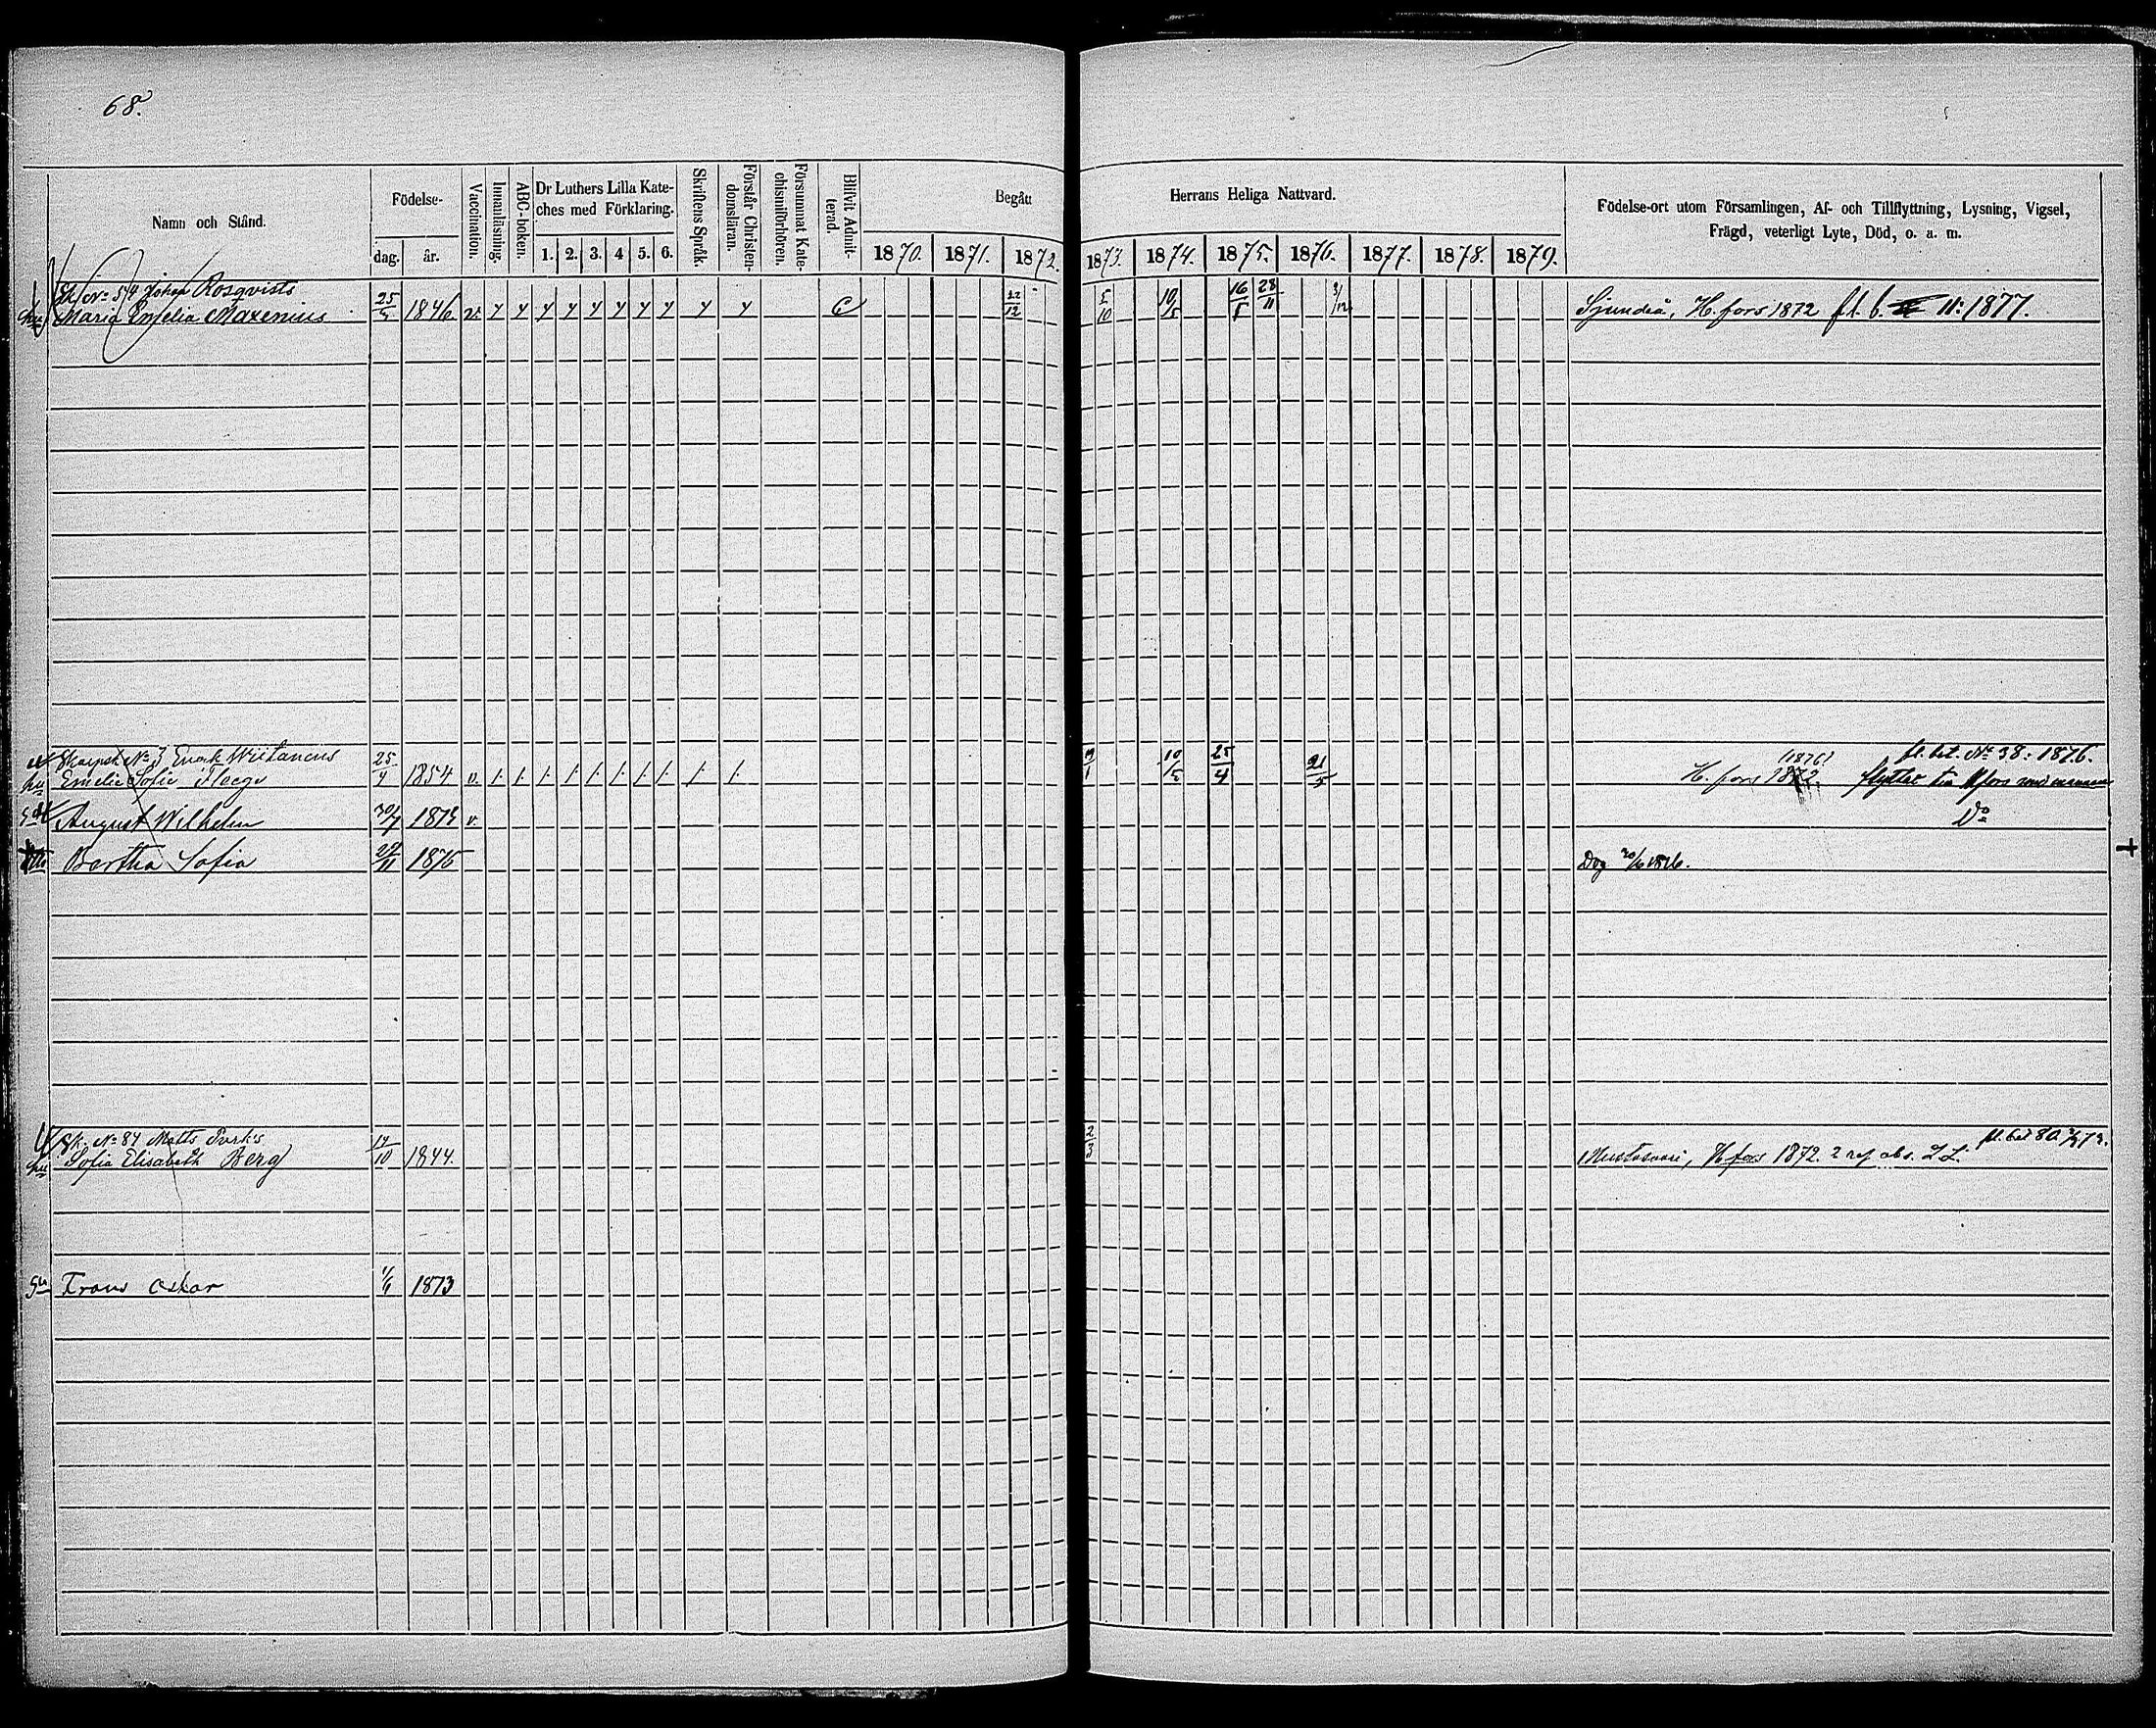 68.
Namn och Stånd.
Födelse-
dag.
år.
Vaccination.
Innanläsning.
ABC-boken.
Dr Luthers Lilla Kate-
ches med Förklaring.
1. 2. 3. 4 5. 6.
Skriftens Språk.
Förstår Christen-
domsläran.
Försummat Kate-
chismiförhören.
Blifvit Admit-
terad.
Begått Herrans Heliga Nattvard.
1870. 1871. 1872. 1873. 1874. 1875. 1876. 1877. 1878. 1879.
Födelse-ort utom Församlingen, Af- och Tillflyttning, Lysning, Vigsel,
Frägd, veterligt Lyte, Död, o. a. m.
Sk. No 54 Johan Rosqvists
hu Maria Emelia Maxenius 25/5 1846 v. 22/12 5/10 10/5 16/5 28/11 Sjundeå, H.fors 1872 fl. b. 11: 1877.
Skarpsk. No 3 Enock Wiitanens fl. bet. No 38: 1876.
hu Emelie Sofie 25/4 1854 v. 10/5 25/4 21/5 H.fors 1872 (1876) flyttar till Hfors med mannen
August Wilhelm 30/7 1873 v. Do
Bertha Sofia 1875 Dog 1876.
Sk. No 84 Matts Turk's fl. bet 80
hu Sofia Elisabeth Berg 1844. 2/3 Mustasaari, H.fors 1872. 2 abs. L.L.
Frans Oskar 1/6 1873